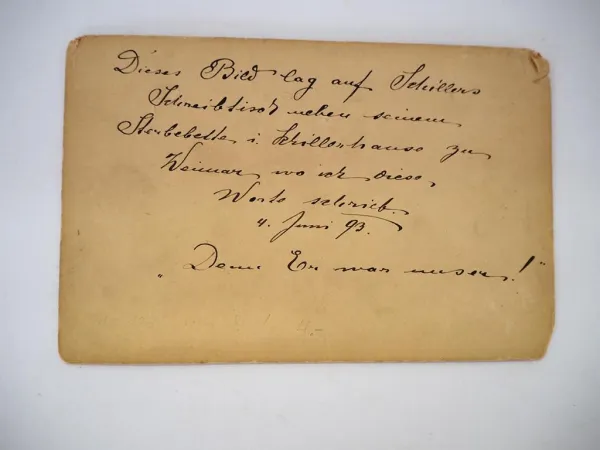 Dieses Bild lag auf Schillers
Schreibtisch neben seinem
Sterbebette i. Schillerhause zu
Weimar wo ich diese
Worte schrieb.
4. Juni 93.
„Denn Er war unser!"
4.-